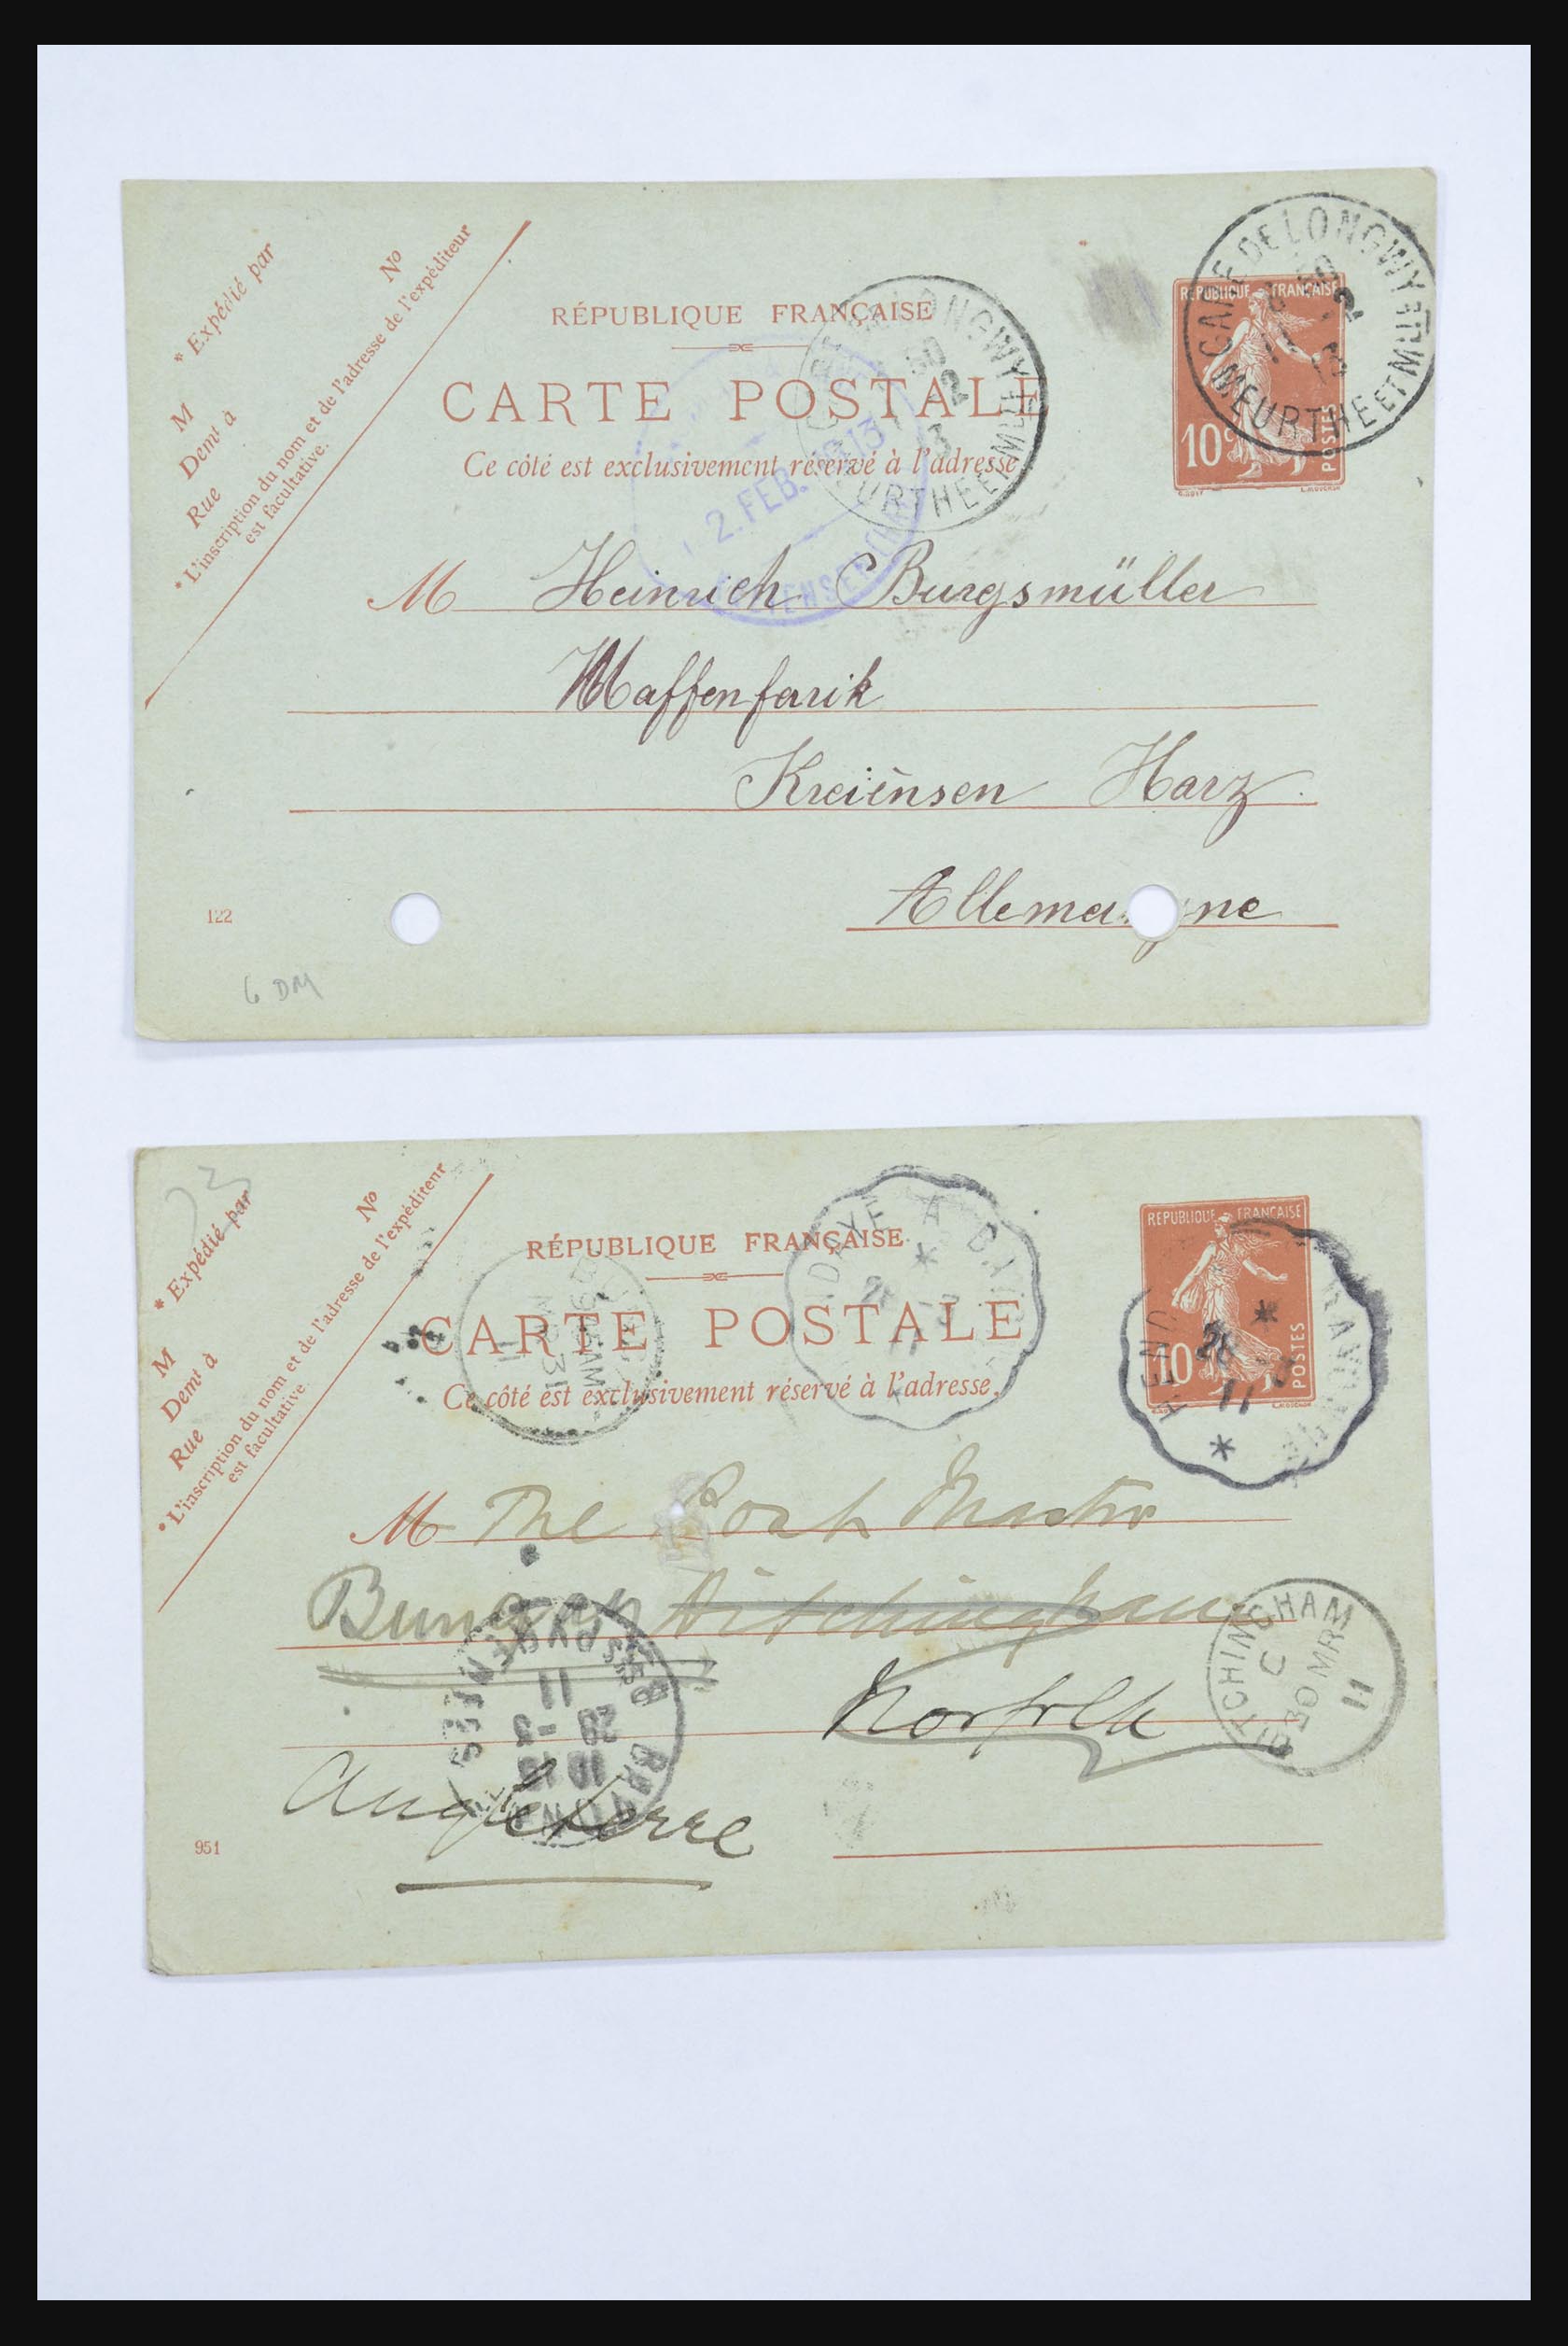 * Expédié par
Nº
M
Demt à
Rue
* L'inscription du nom et de l'adresse de l'expéditeur
est facultative.
RÉPUBLIQUE FRANÇAISE
CARTE POSTALE
Ce côté est exclusivement réservé à l'adresse
RÉPUBLIQUE FRANÇAISE
10c
POSTES
GARE DE LONGWY
MEURTHE ET MLLE
LONGWY
2. FEB. 1913
M Heinrich Burgsmüller
Waffenfarik
Kreiensen Harz
Allemagne
122
6 DM
* Expédié par
Nº
M
Demt à
Rue
* L'inscription du nom et de l'adresse de l'expéditeur
est facultative.
RÉPUBLIQUE FRANÇAISE
CARTE POSTALE
Ce côté est exclusivement réservé à l'adresse.
REPUBLIQUE FRANÇAISE
10
POSTES
DAYE A BAY
M The Post Master
Bungay Ditchingham
Norfolk
DITCHINGHAM
C
30 MR
11
BAYONNE
BSSES PYRÉNÉES
10 15
28 -3
11
Angleterre
951